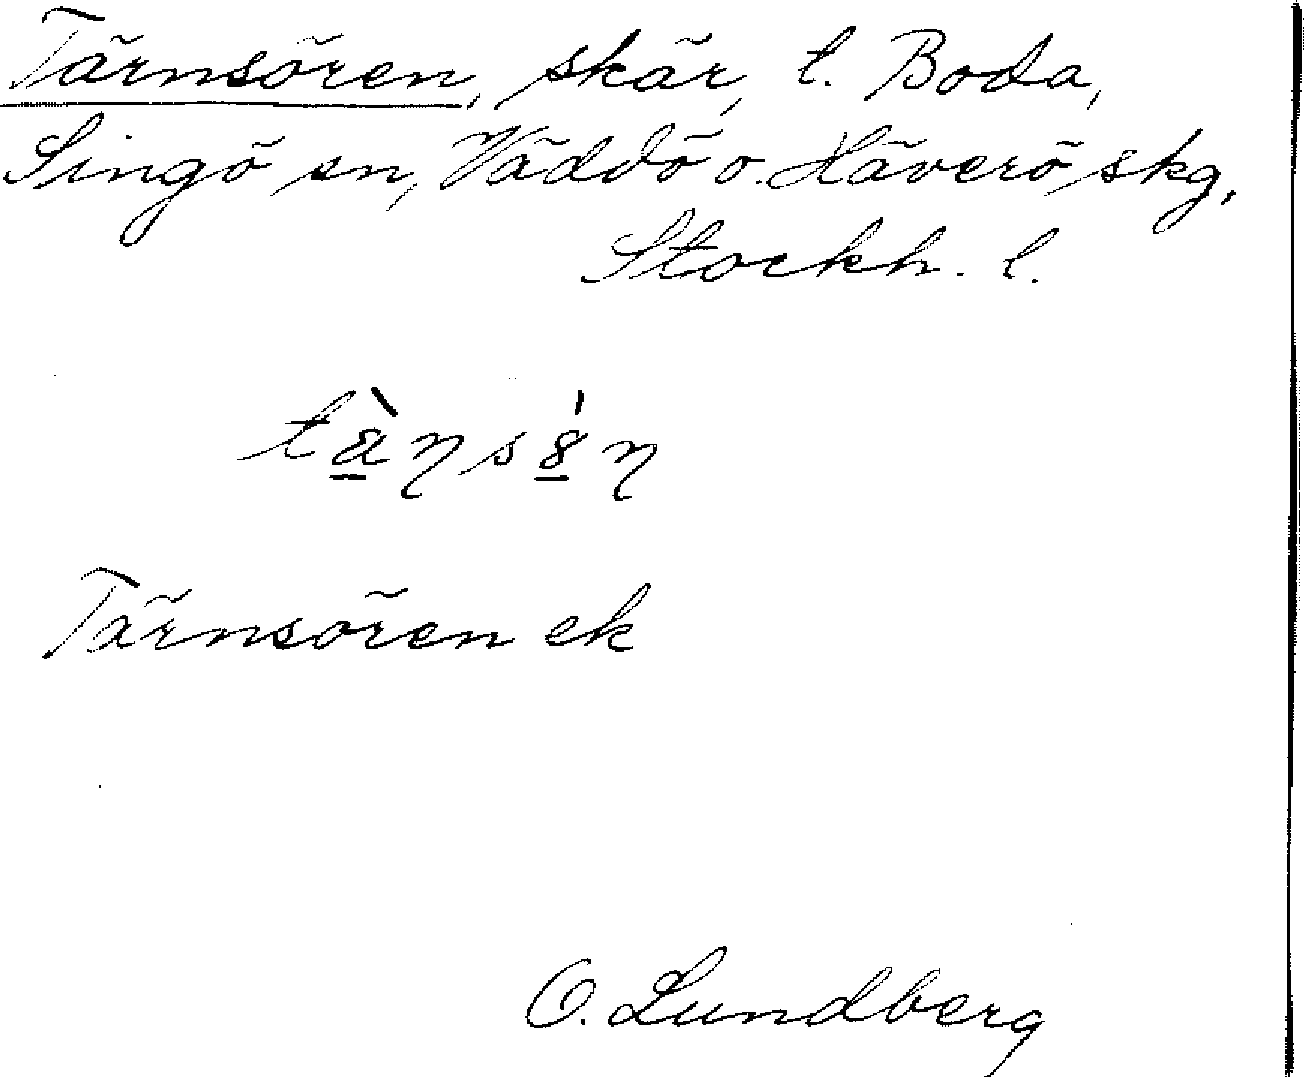 Tärnsören, skär, t. Boda,
Singö sn, Väddö o. Häverö skg,
Stockh. l.
tä̀ɳsö́ɳ
Tärnsören ek
O. Lundberg